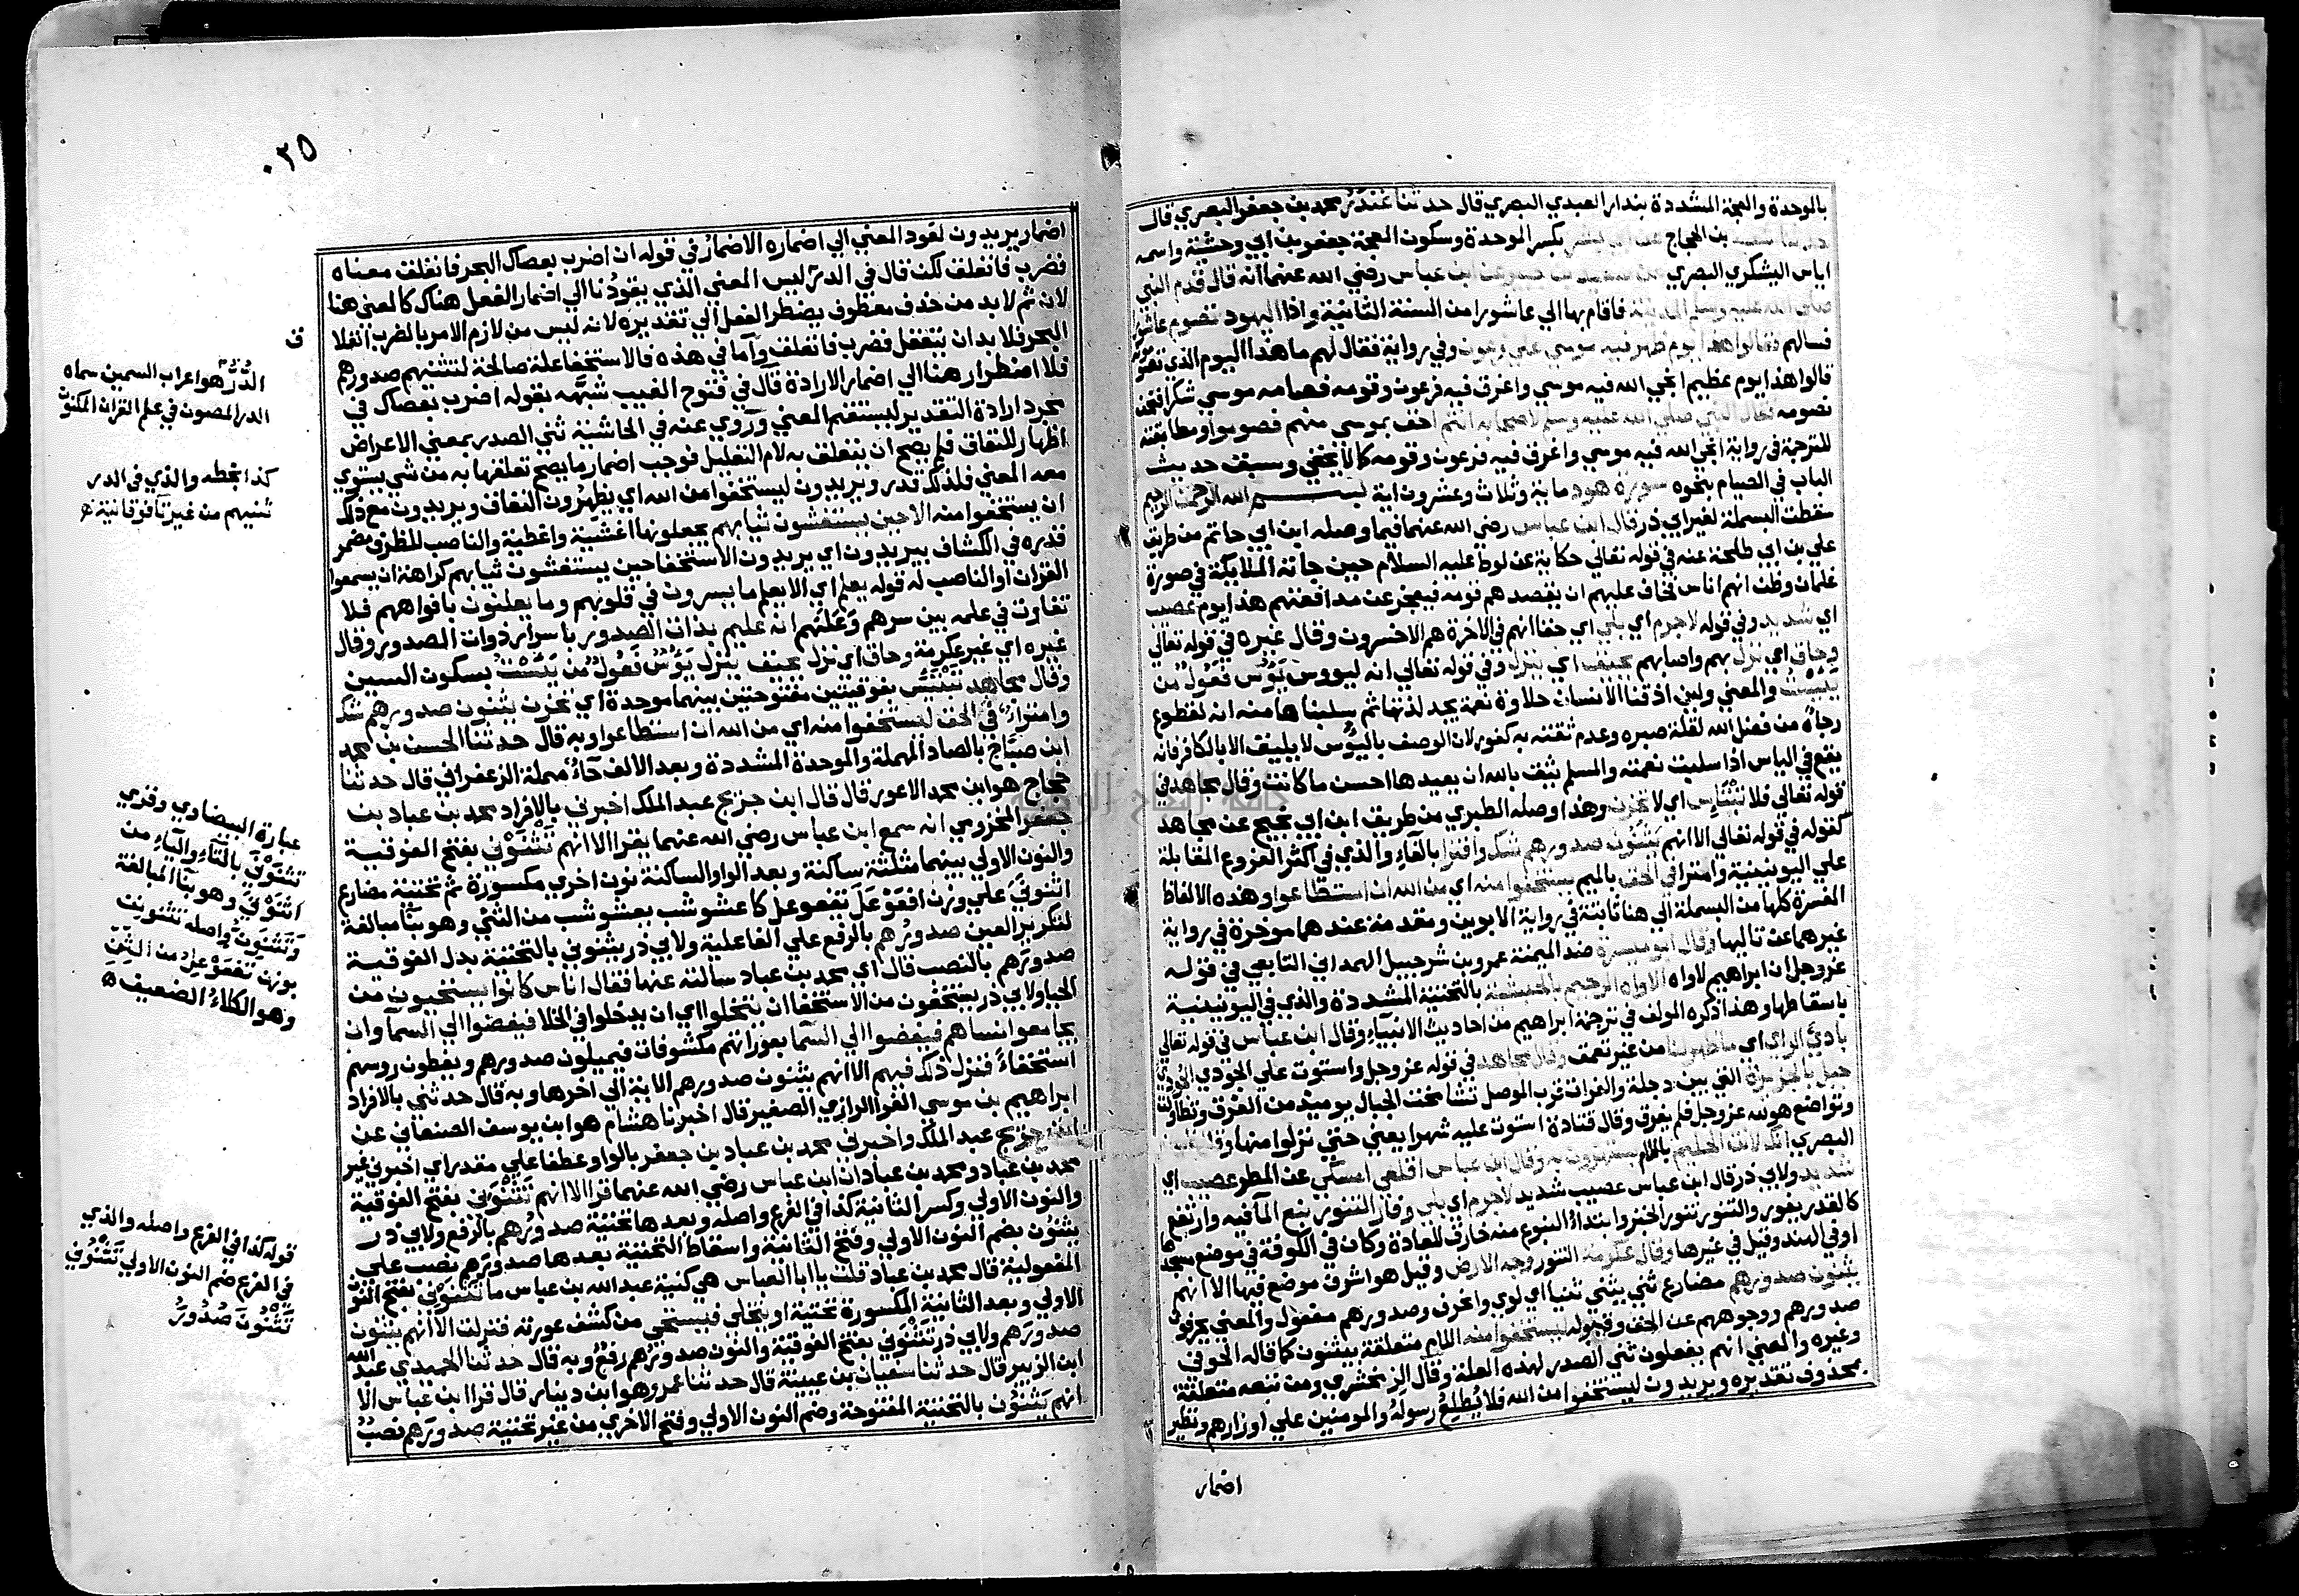 بالموحدة والمعجمة المشددة بندار العبدي البصري قال حدثنا غندر محمد بن جعفر البصري قال
حدثنا شعبة بن الحجاج عن ابي بشر بكسر الموحدة وسكون المعجمة جعفر بن ابي وحشية واسمه
اياس اليشكري البصري عن سعيد بن جبير عن ابن عباس رضي الله عنهما انه قال قدم النبي
صلى الله عليه وسلم المدينة فاقام بها الي عاشورا من السنة الثانية واذا اليهود تصوم عاشورا
فسالهم فقالوا هذا يوم ظهر فيه موسي علي فرعون وفي رواية فقال لهم ما هذا اليوم الذي تصومونه
قالوا هذا يوم عظيم انجي الله فيه موسي واغرق فيه فرعون وقومه فصامه موسي شكرا فنحن
نصومه فقال النبي صلى الله عليه وسلم لاصحابه انتم احق بموسي منهم فصوموا ومطابقته
للترجمة في رواية انجي الله فيه موسي واغرق فيه فرعون وقومه كما لا يخفي وسبق حديث
الباب في الصيام بنحوه سورة هود ماية وثلاث وعشرون اية بسم الله الرحمن الرحيم
سقطت البسملة لغير ابي ذر قال ابن عباس رضي الله عنهما فيما وصله ابن ابي حاتم من طريق
علي بن ابي طلحة عنه في قوله تعالي حكاية عن لوط عليه السلام حين جاته الملايكة في صورة
غلمان وظن انهم اناس فخاف عليهم ان يقصدهم قومه فيعجز عن مدافعتهم هذا يوم عصيب
اي شديد وفي قوله لاجرم اي بلي اي حقا انهم في الاخرة هم الاخسرون وقال غيره في قوله تعالي
وحاق اي نزل بهم واصابهم يحيق اي ينزل وفي قوله تعالي انه ليووس يَؤُس فَعُول من
يَئِسْتُ والمعني ولين اذقنا الانسان حلاوة نعمة يجد لذتها ثم سلبناها منه انه لقطوع
رجاه من فضل الله لقلة صبره وعدم ثقته به كفور لان الوصف باليؤس لا يليق الا بالكافر فانه
يقع في الياس اذا سلبت نعمته والمسلم يثق بالله ان يعيدها احسن ما كانت وقال مجاهد في
قوله تعالي فلا تبتئس اي لا تحزن وهذا وصله الطبري من طريق ابن ابي نجيح عن مجاهد
كقوله في قوله تعالي الا انهم يثنون صدورهم شك وافترا بالفاء والذي في اكثر الفروع المقابلة
علي اليونينية وامترا في الحق بالميم يستخفوا منه اي من الله ان استطاعوا وهذه الالفاظ
المفسرة كلها من البسملة الي هنا ثابتة في رواية الابوين ومقدمة عندهما موخرة في رواية
غيرهما عن تاليها وقال ابو ميسرة ضد الميمنة عمرو بن شرحبيل الهمداني التابعي في قوله
عز وجل ان ابراهيم لاواه الاواه الرحيم بالحبشية بالتحتية المشددة والذي في اليونينية
باسقاطها وهذا ذكره المولف في ترجمة ابراهيم من احاديث الانبياء وقال ابن عباس في قوله تعالي
بادئ الراي اي ما ظهر لنا من غير تعمق وقال مجاهد في قوله عز وجل واستوت علي الجودي الجودي
جبل بالجزيرة التي بين دجلة والفرات قرب الموصل تشامخت الجبال يوميذ من الغرق وتطاولت
وتواضع هو لله عز وجل فلم يغرق وقال قتادة استوت عليه شهرا يعني حتي نزلوا منها
البصري انك لانت الحليم باللام يستهزون به وقال ابن عباس اقلعي امسكي عن المطر عصيب اي
شديد ولابي ذر قال ابن عباس عصيب شديد لاجرم اي بلي وفار التنور نبع المآ فيه وارتفع
كالقدر يفور والتنور تنور الخبز وابتداء النبوع منه خارق للعادة وكان في الكوفة في موضع مسجدها
او في الهند وقيل في غيرها وقال عكرمة التنور وجه الارض وقيل هو اشرف موضع فيها الا انهم
يثنون صدورهم مضارع ثني يثني ثنيا اي لوي وانحرف وصدورهم مفعول والمعني يحرفون
صدورهم ووجوههم عن الحق وقبوله ليستخفوا منه اللام متعلقة بيثنون كما قاله الحوفي
وغيره والمعني انهم يفعلون ثني الصدر لهذه العلة وقال الزمخشري ومن تبعه متعلقة
بمحذوف تقديره ويريدون ليستخفوا من الله فلا يُطْلِعُ رسولَهُ والمومنين علي اوزارهم ونظير
اضمار
٠٢٥
اضمار يريدون لقود المعني الي اضماره الاضمار في قوله ان اضرب بعصاك البحر فانفلق معناه
فضرب فانفلق لكن قال في الدر ليس المعني الذي يقودنا الي اضمار الفعل هناك كالمعني هنا
لان ثم لابد من حذف معطوف يضطر الفعل الي تقديره لانه ليس من لازم الامر بالضرب انفلا
البحر فلا بد ان يتعقل فضرب فانفلق وأما في هذه فالاستخفا علة صالحة لتثنيهم صدورهم
فلا اضطرار هنا الي اضمار الارادة قال في فتوح الغيب شبّهه بقوله اضرب بعصاك في
مجرد ارادة التقدير ليستقيم المعني وروي عنه في الحاشية ثني الصدر بمعني الاعراض
اظهار للنفاق فلم يصح ان يتعلق به لام التعليل فوجب اضمار ما يصح تعلقها به من شي يستوي
معه المعني فلذلك قدر ويريدون ليستخفوا من الله اي يظهرون النفاق ويريدون مع ذلك
ان يستخفوا منه الا حين يستغشون ثيابهم يجعلونها اغشية واغطية والناصب للظرف مضمر
قدره في الكشاف بيريدون اي يريدون الاستخفا حين يستغشون ثيابهم كراهة ان يسمعوا
القران او الناصب له قوله يعلم اي الا يعلم ما يسرون في قلوبهم وما يعلنون بافواههم فلا
تفاوت في علمه بين سرهم وعَلَنهم انه عليم بذات الصدور باسرار ذوات الصدور وقال
غيره اي غير عكرمة وحاق اي نزل يحيق ينزل يَؤُسٌ فَعُولٌ من يَئِسْتُ بسكون السين
وقال مجاهد تَبْتَئِسُ بفوقيتين مفتوحتين بينهما موحدة اي تحزن يثنون صدورهم شك
وامتراءٌ في الحق ليستخفوا منه اي من الله ان استطاعوا وبه قال حدثنا الحسن بن محمد
ابن صبّاح بالصاد المهملة والموحدة المشددة وبعد الالف حآءٌ مهملة الزعفراني قال حدثنا
حجاج هو ابن محمد الاعور قال قال ابن جريج عبد الملك اخبرني بالافراد محمد بن عباد بن
جعفر المخزومي انه سمع ابن عباس رضي الله عنهما يقرا الا انهم تَثْنَوْنِي بفتح الفوقية
والنون الاولي بينهما مثلثة ساكنة وبعد الواو الساكنة نون اخري مكسورة ثم تحتية مضارع
اثنوني علي وزن افعَوْعَلَ تفعوعل كاعشوشب يعشوشب من الثني وهو بنا مبالغة
لتكرير العين صدورُهم بالرفع علي الفاعلية ولابي ذر يثنوني بالتحتية بدل الفوقية
صدورَهم بالنصب قال اي محمد بن عباد سالته عنها فقال اناس كانوا يستحيون من
الحيا ولابي ذر يستخفون من الاستخفا ان يتخلوا اي ان يدخلوا في الخلا فيفضوا الي السمآ وان
يجامعوا نساهم فيفضوا الي السما بعوراتهم مكشوفات فيميلون صدورهم ويغطون روسهم
استخفاءً فنزل ذلك فيهم الا انهم يثنون صدورهم الاية الي اخرها وبه قال حدثني بالافراد
ابراهيم بن موسي الفرا الرازي الصغير قال اخبرنا هشام هو ابن يوسف الصنعاني عن
ابن جريج عبد الملك واخبرني محمد بن عباد بن جعفر بالواو عطفا علي مقدر اي اخبرني غير
محمد بن عباد ومحمد بن عباد ان ابن عباس رضي الله عنهما قرا الا انهم تَثْنَوْنِي بفتح الفوقية
والنون الاولي وكسر الثانية كذا في الفرع واصله وبعدها تحتية صدورُهم بالرفع ولابي ذر
يثنون بضم النون الاولي وفتح الثانية واسقاط التحتية بعدها صدورَهم نصب علي
المفعولية قال محمد بن عباد قلت يا ابا العباس هي كنية عبد الله بن عباس ما تثنوني بفتح النون
الاولي وبعد الثانية المكسورة تحتية او يتخلي فيستحي من كشف عورته فنزلت الا انهم يثنون
صدورهم ولابي ذر تَثْنَوْنِي بفتح الفوقية والنون صدورُهم رفعٌ وبه قال حدثنا الحميدي عبد الله
ابن الزبير قال حدثنا سفيان بن عيينة قال حدثنا عمرو هو ابن دينار قال قرا ابن عباس الا
انهم يَثْنُوْن بالتحتية المفتوحة وضم النون الاولي وفتح الاخري من غير تحتية صدورَهم نصبٌ
ق
الدُّرُّ هو اعراب السمين سماه
الدر المصون في علم القران المكنون
كذا بخطه والذي في الدر
ثنيهم من غير تآ فوقانية
عبارة البيضاوي وقري
تثنَوْنِي بالتآءِ واليآءِ من
اثنَوْنَي وهو بنآ المبالغة
وتَثْنَوِنُّ واصله تثنونن
بوزن تفعَوْعِلُ من الثنّ
وهو الكلاءُ الضعيف
قوله كذا في الفرع واصله والذي
في الفرع ضم النون الاولي تَثْنُوني
تَثْنُونَ صُدُورُ